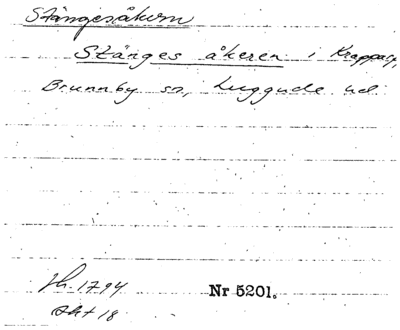 Stångesåkern
Stånges åkeren i Krapparp,
Brunnby sn, Luggude hd.
Jh. 1794
Akt 18
Nr 5201.